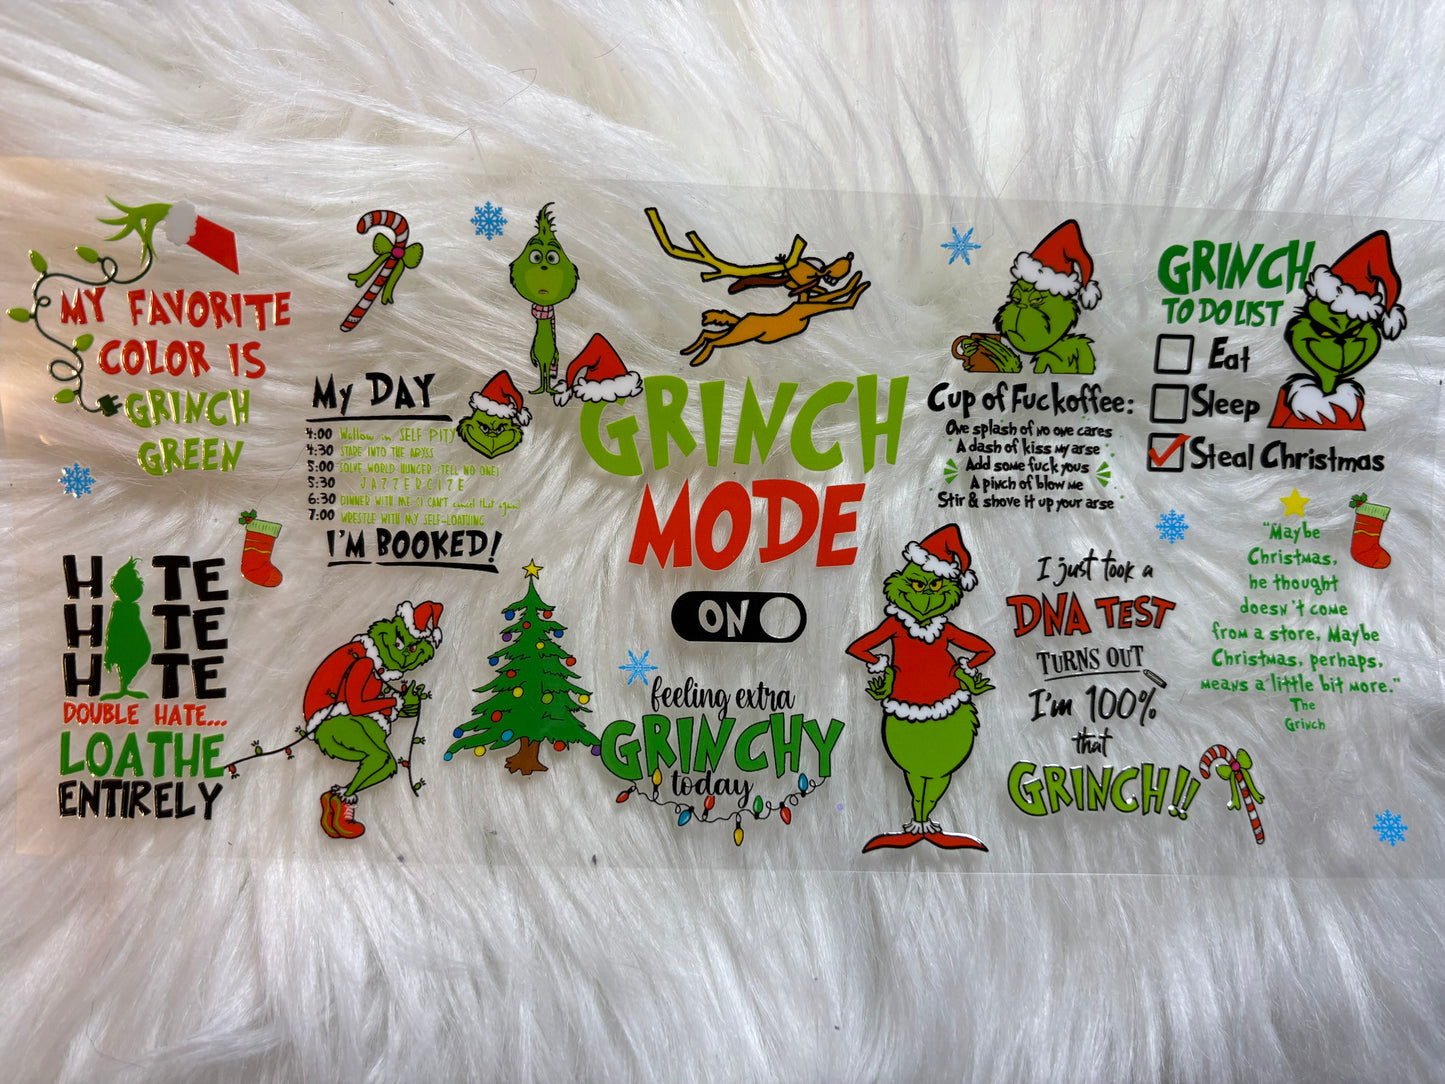 MY FAVORITE
COLOR IS
GRINCH
GREEN
My DAY
4:00 Wallow in SELF PITY
4:30 STARE INTO THE ABYSS
5:00 SOLVE WORLD HUNGER (TELL NO ONE)
5:30 JAZZERCIZE
6:30 DINNER WITH ME (I CAN'T cancel that again)
7:00 WRESTLE WITH MY SELF-LOATHING
I'M BOOKED!
GRINCH
MODE
ON
Cup of Fuckoffee:
One splash of no one cares
A dash of kiss my arse
Add some fuck yous
A pinch of blow me
Stir & shove it up your arse
GRINCH
TO DO LIST
Eat
Sleep
Steal Christmas
HATE
HATE
HATE
DOUBLE HATE...
LOATHE
ENTIRELY
feeling extra
GRINCHY
today
I just took a
DNA TEST
TURNS OUT
I'm 100%
that
GRINCH!!
"Maybe
Christmas,
he thought
doesn't come
from a store, Maybe
Christmas, perhaps,
means a little bit more."
The
Grinch